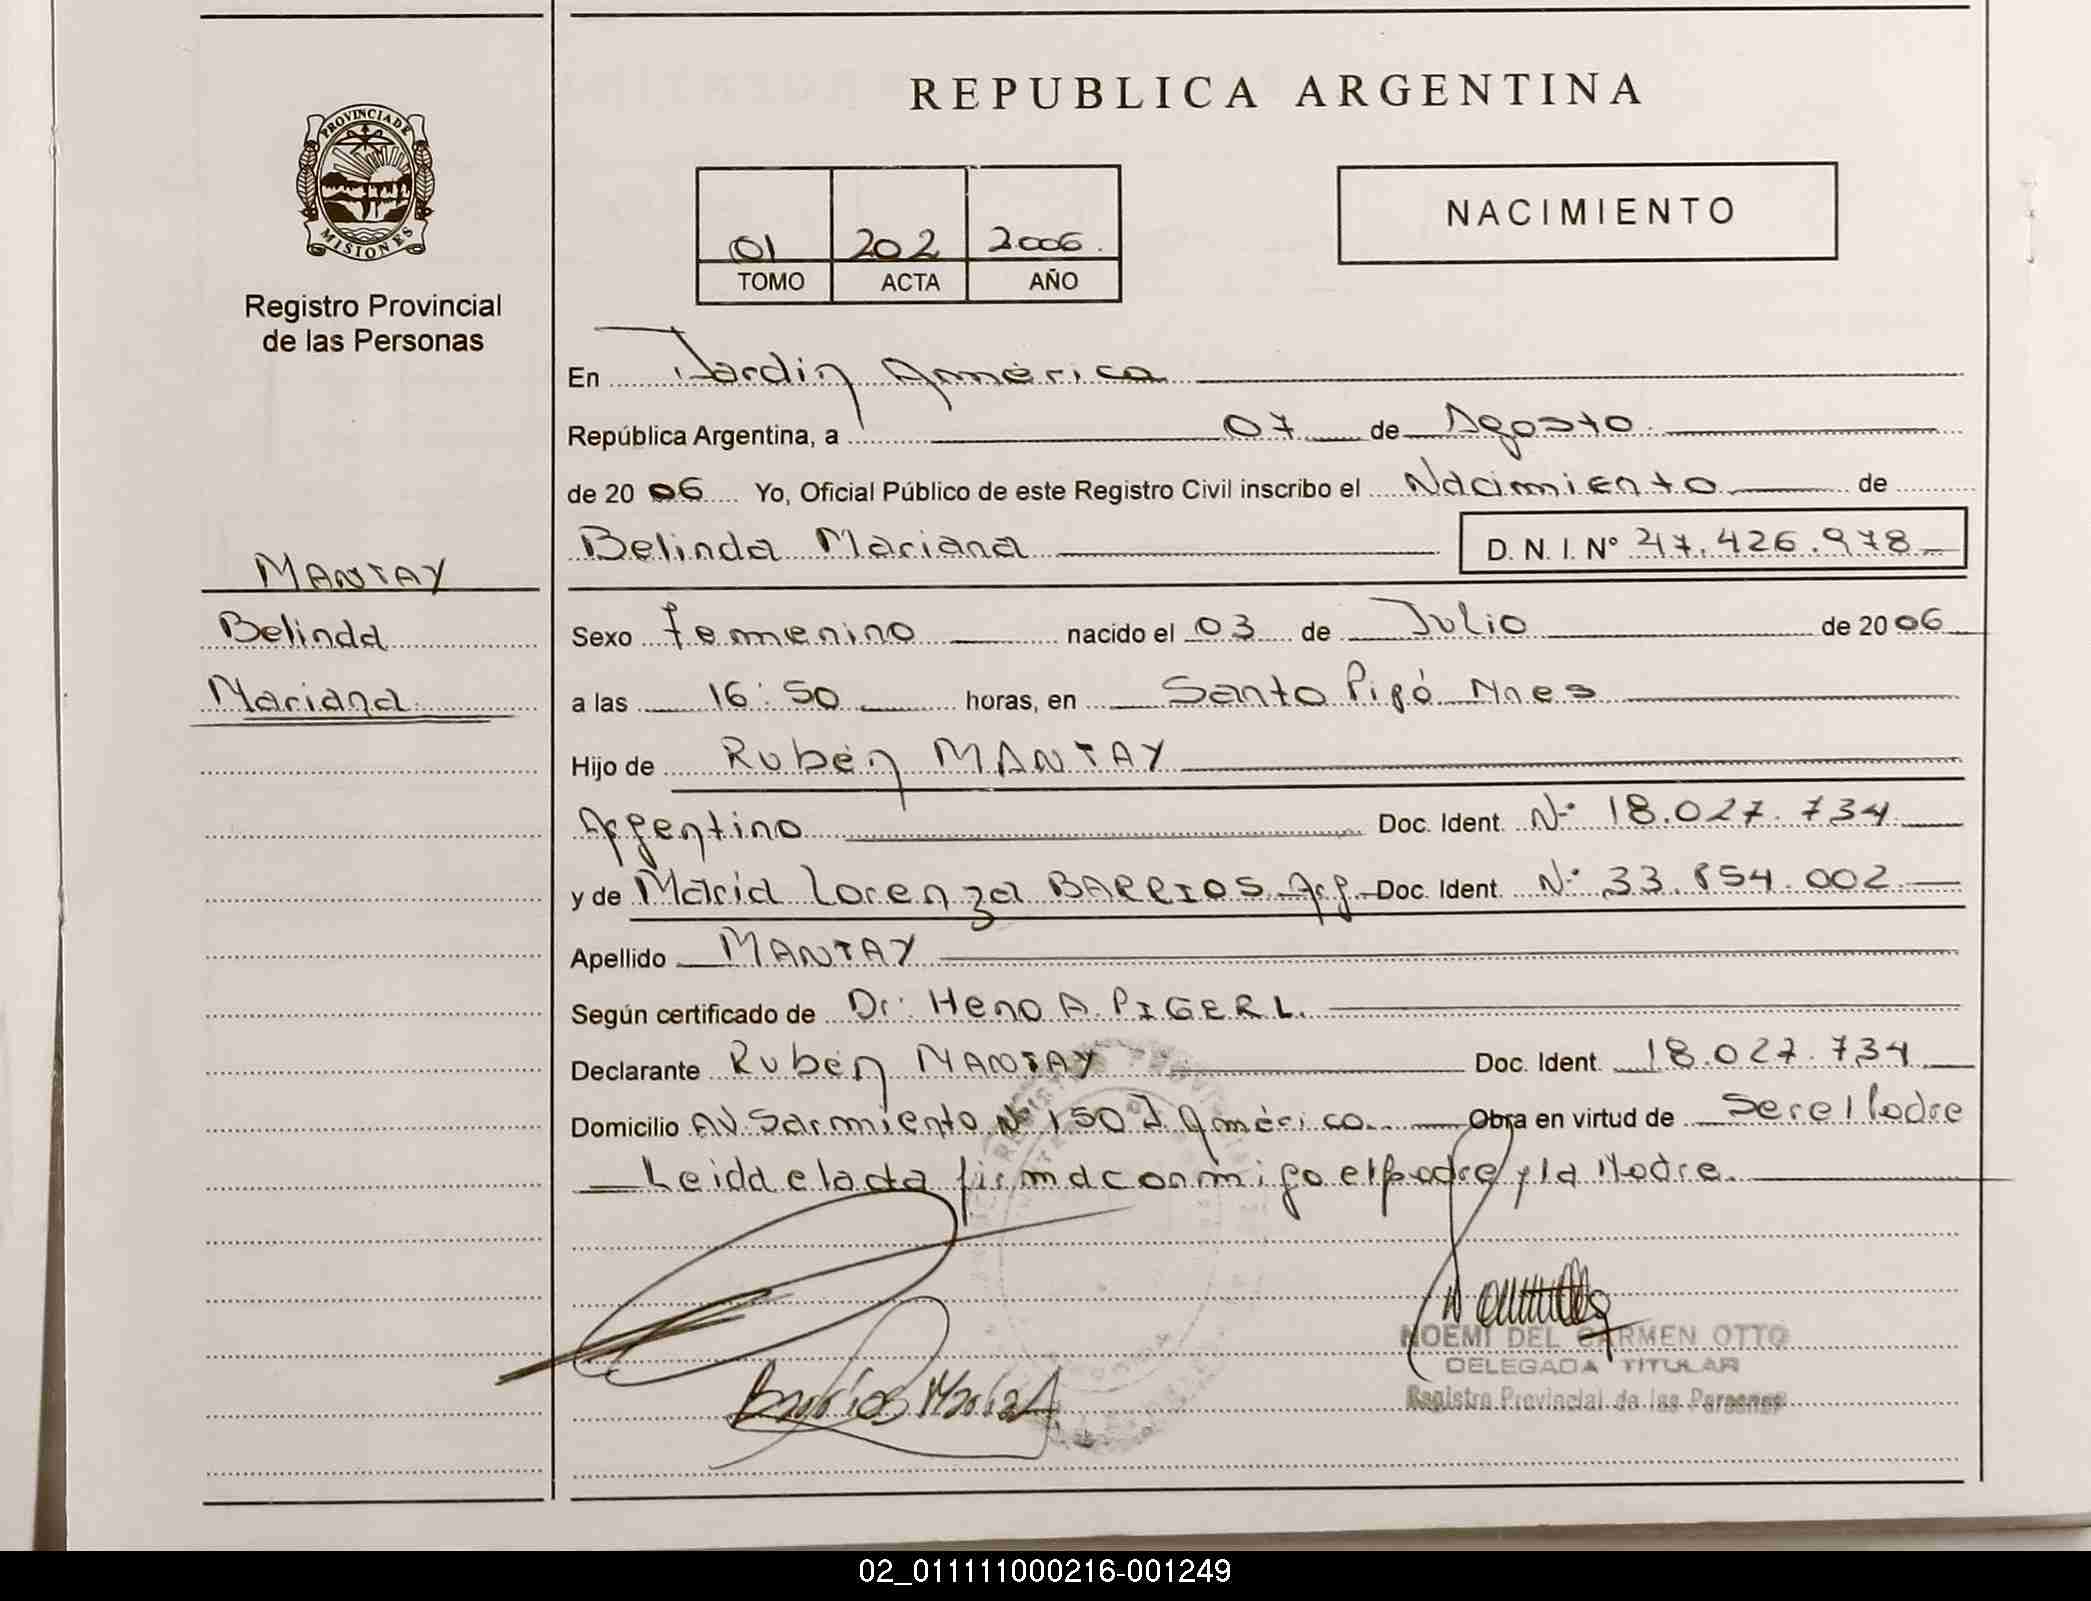 REPUBLICA ARGENTINA
PROVINCIA DE
MISIONES
Registro Provincial
de las Personas
NACIMIENTO
01 202 2006.
TOMO ACTA AÑO
En Jardín América
República Argentina, a 07 de Agosto
de 20 06 Yo, Oficial Público de este Registro Civil inscribo el Nacimiento de
Belinda Mariana D. N. I. Nº 47.426.978
MANTAY
Belinda
Mariana
Sexo Femenino nacido el 03 de Julio de 20 06
a las 16:50 horas, en Santo Pipó Mnes
Hijo de Rubén MANTAY
Argentino Doc. Ident. Nº 18.027.734
y de María Lorenza BARRIOS Arg. Doc. Ident. Nº 33.854.002
Apellido MANTAY
Según certificado de Dr. Heno A. PIGERL.
Declarante Rubén MANTAY Doc. Ident. 18.027.734
Domicilio AV. Sarmiento Nº 150 J. América Obra en virtud de Ser el Padre
Leida el acta firma conmigo el padre y la Madre.
Barrios María L
NOEMI DEL CARMEN OTTO
DELEGADA TITULAR
Registro Provincial de las Personas
02_011111000216-001249